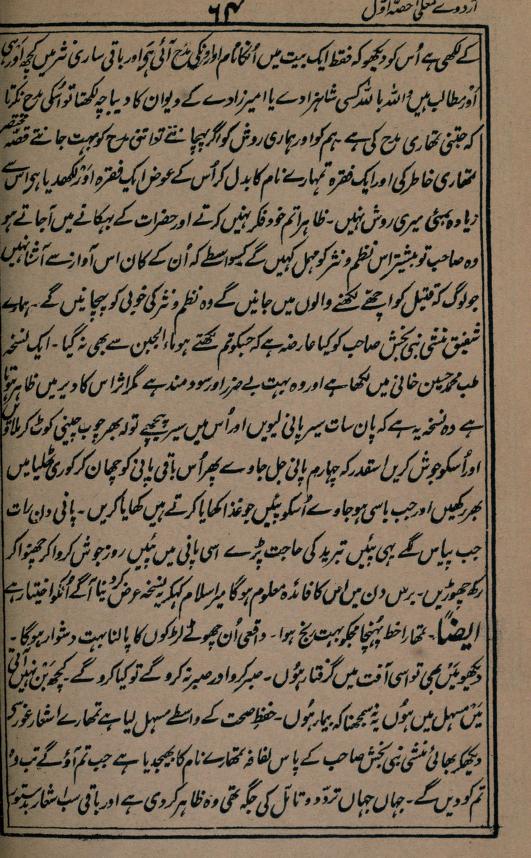 اردوے معلیٰ حصّہ اول
۶۴
کے لکھی ہے اُس کو دیکھو کہ فقط ایک بیت میں اُنکا نام اور اُنکی مدح آئی ہے اور باقی ساری نثر میں کچھ اور ہی
اور مطالب ہیں واللہ باللہ کسی شاہزادے یا امیرزادے کے دیوان کا دیباچہ لکھتا تو اُسکی مدح نکرتا
کہ جتنی تمھاری مدح کی ہے ہم کو اور ہماری روش کو اگر پہچانتے تو اتنی مدح کو بہت جانتے قصّہ مختصر
تمھاری خاطر کی اور ایک فقرہ تمہارے نام کا بدل کر اُس کے عوض ایک فقرہ اور لکھدیا ہے اس سے
زیادہ بھئی میری روش نہیں۔ ظاہرا تم خود فکر نہیں کرتے اور حضرات کے بہکانے میں آجاتے ہو
وہ صاحب تو بیشتر اس نظم و نثر کو مہمل کہیں گے کسواسطے کہ اُن کے کان اس آواز سے آشنا نہیں
جو لوگ کہ قتیل کو اچھے لکھنے والوں میں جانیں گے وہ نظم و نثر کی خوبی کو کیا پہچانیں گے۔ ہمارے
شفیق منشی نبی بخش صاحب کو کیا عارضہ ہے کہ جسکو تم لکھتے ہو ماء الجبن سے بھی نہ گیا۔ ایک نسخہ
طب محمد حسین خانی میں لکھا ہے اور وہ بہت بے ضرر اور سودمند ہے مگر اثر اس کا دیر میں ظاہر ہوتا
ہے وہ نسخہ یہ ہے کہ پان سات سیر پانی لیویں اور اُس میں سیر پیچھے تولہ بھر چوب چینی کوٹ کر ملا دیں
اور اُسکو جوش کریں اسقدر کہ چہارم پانی جل جاوے پھر اُس باقی پانی کو چھان کر کوری ٹھلیا میں
بھر رکھیں اور جب باسی ہو جاوے اُسکو پئیں جو غذا کھایا کرتے ہیں کھایا کریں۔ پانی دن رات
جب پیاس لگے یہی پئیں تبرید کی حاجت پڑے اسی پانی میں پئیں روز جوش کروا کر چھنوا کر
رکھ چھوڑیں۔ برس دن میں اس کا فائدہ معلوم ہوگا میرا سلام کہکر یہ نسخہ عرض کر دینا آگے اُنکو اختیار ہے
ایضاً۔ تمھارا خط پہنچا مجکو بہت رنج ہوا۔ واقعی اُن چھوٹے لڑکوں کا پالنا بہت دشوار ہوگا۔
دیکھو میں بھی تو اسی آفت میں گرفتار ہوں۔ صبر کرو اور صبر نہ کرو گے تو کیا کرو گے۔ کچھ بن نہیں آتی
میں مسہل میں ہوں یہ نہ سمجھنا کہ بیمار ہوں۔ حفظ صحت کے واسطے مسہل لیا ہے تمھارے اشعار غور سے
دیکھکر بھائی منشی نبی بخش صاحب کے پاس لفافہ تمھارے نام کا بھیجدیا ہے جب تم آؤ گے تب وہ
تم کو دیں گے۔ جہاں جہاں تردّد و تامّل کی جگہ تھی وہ ظاہر کردی ہے اور باقی سب اشعار بدستور